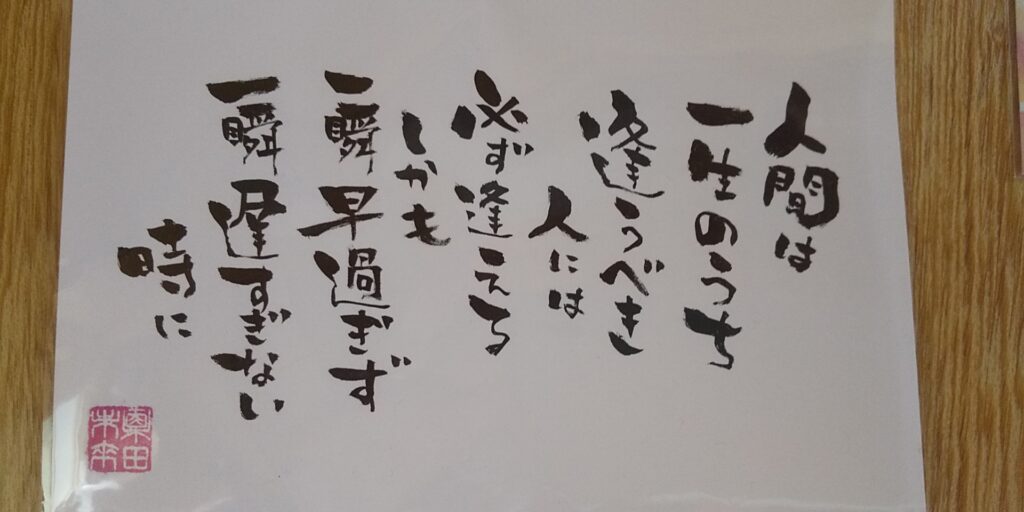 人間は
一生のうち
逢うべき
人には
必ず逢える
しかも
一瞬早過ぎず
一瞬遅すぎない
時に